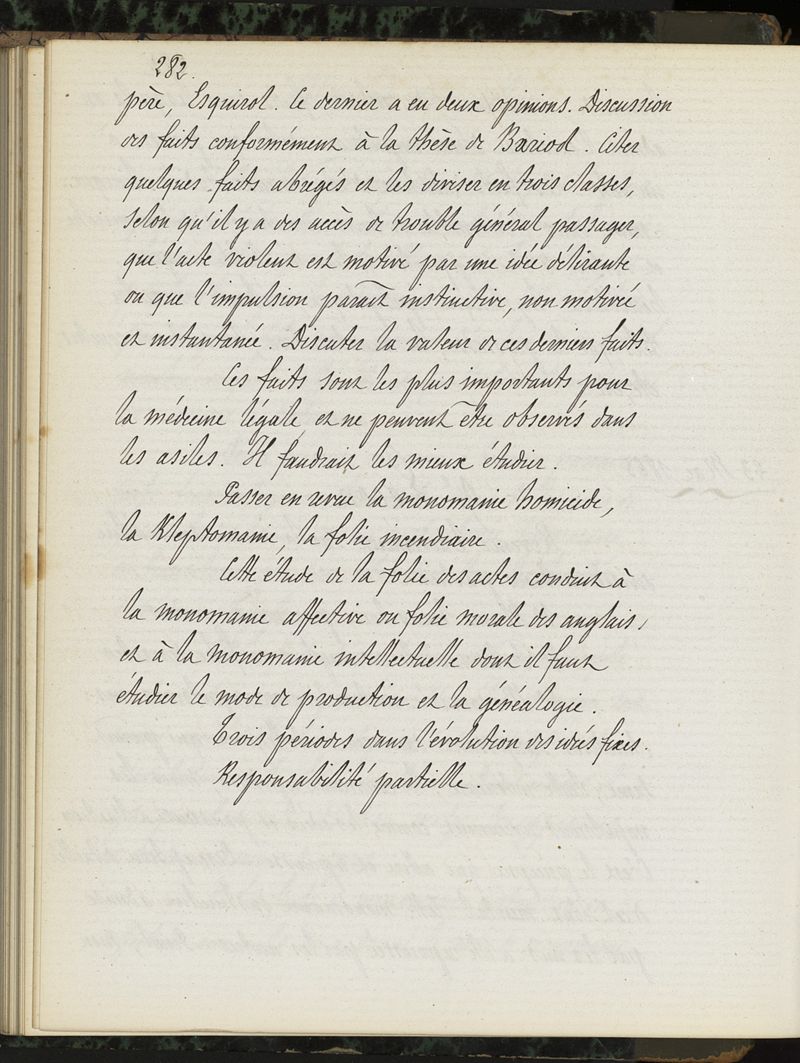 282.
père, Esquirol. Ce dernier a eu deux opinions. Discussion
des faits conformément à la thèse de Bariod. Citer
quelques faits abrégés et les diviser en trois classes,
selon qu'il y a des accès de trouble général passager,
que l'acte violent est motivé par une idée délirante
ou que l'impulsion paraît instinctive, non motivée
et instantanée. Discuter la valeur de ces derniers faits.
Ces faits sont les plus importants pour
la médecine légale, et ne peuvent être observés dans
les asiles. Il faudrait les mieux étudier.
Passer en revue la monomanie homicide,
la Kleptomanie, la folie incendiaire.
Cette étude de la folie des actes conduit à
la monomanie affective ou folie morale des anglais,
et à la monomanie intellectuelle dont il faut
étudier le mode de production et la généalogie.
Trois périodes dans l'évolution des idées fixes.
Responsabilité partielle.